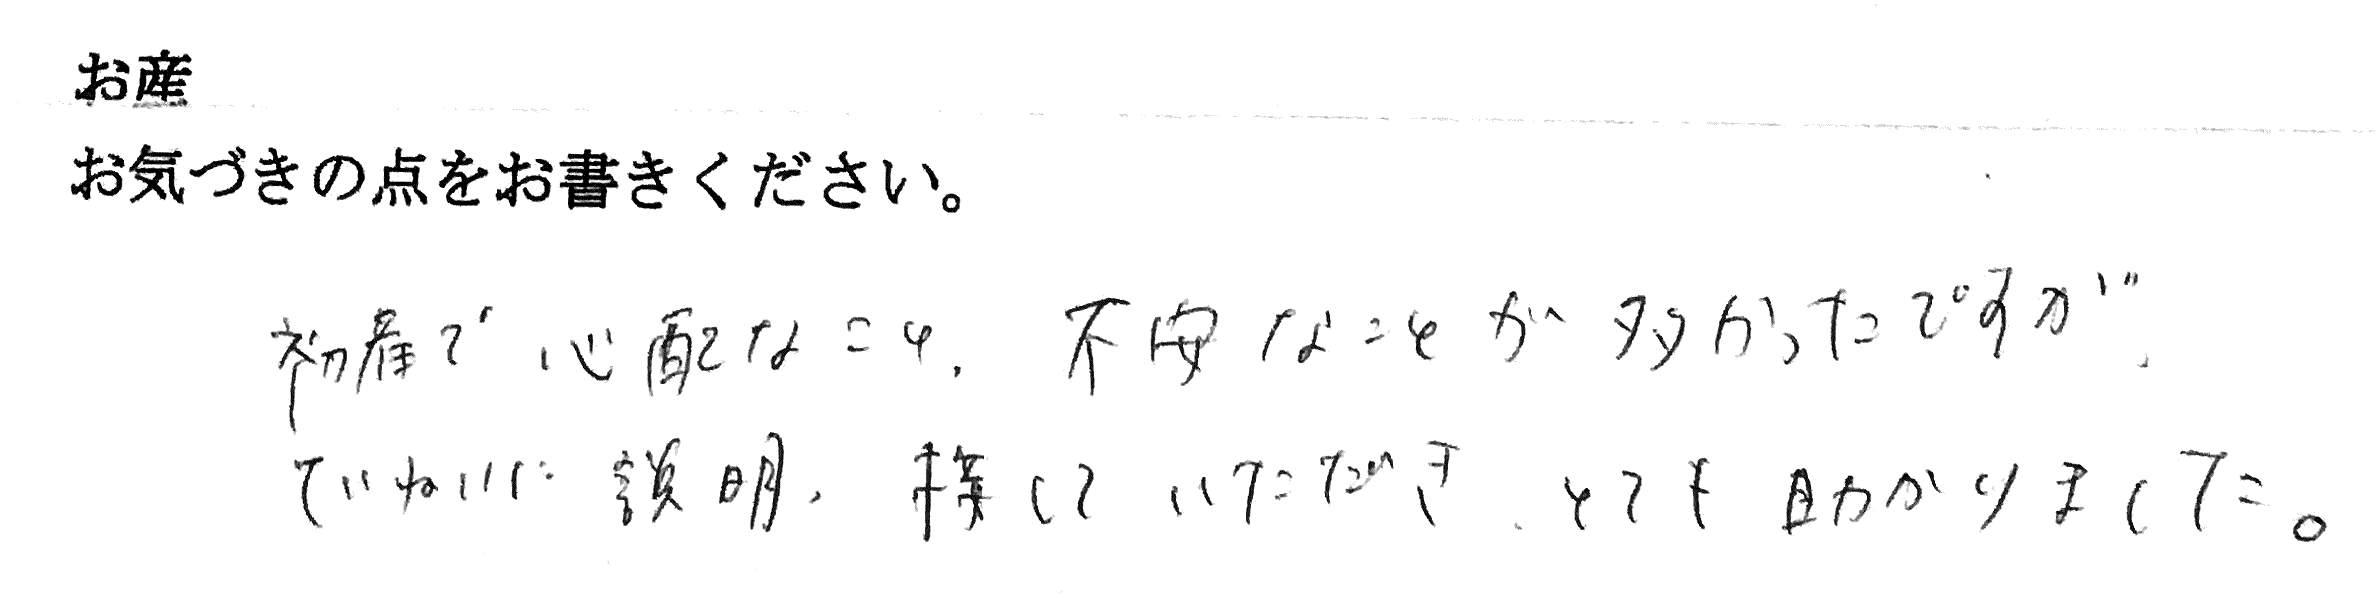 お産
お気づきの点をお書きください。
初産で心配なこと、不安なことが多かったですが、
ていねいに説明、接していただき、とても助かりました。